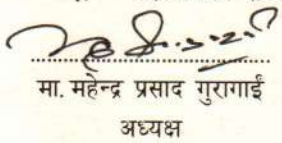 मा. महेन्द्र प्रसाद गुरागाईं
अध्यक्ष